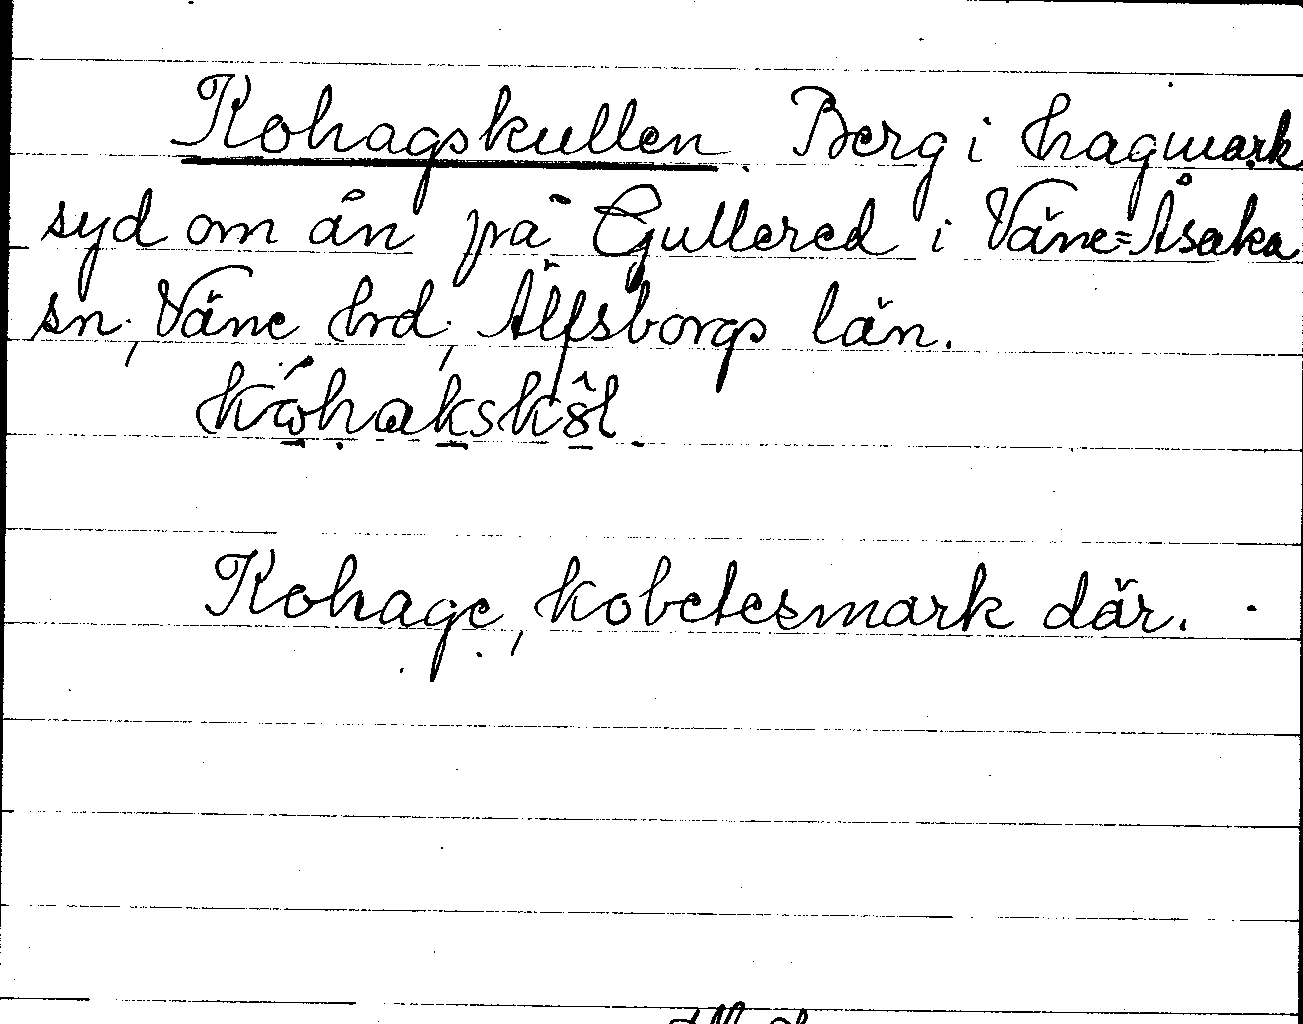 Kohagskullen. Berg i hagmark
syd om ån på Gullered i Väne=Åsaka
sn, Väne hrd, Älfsborgs län.
Kohage, kobetesmark där.